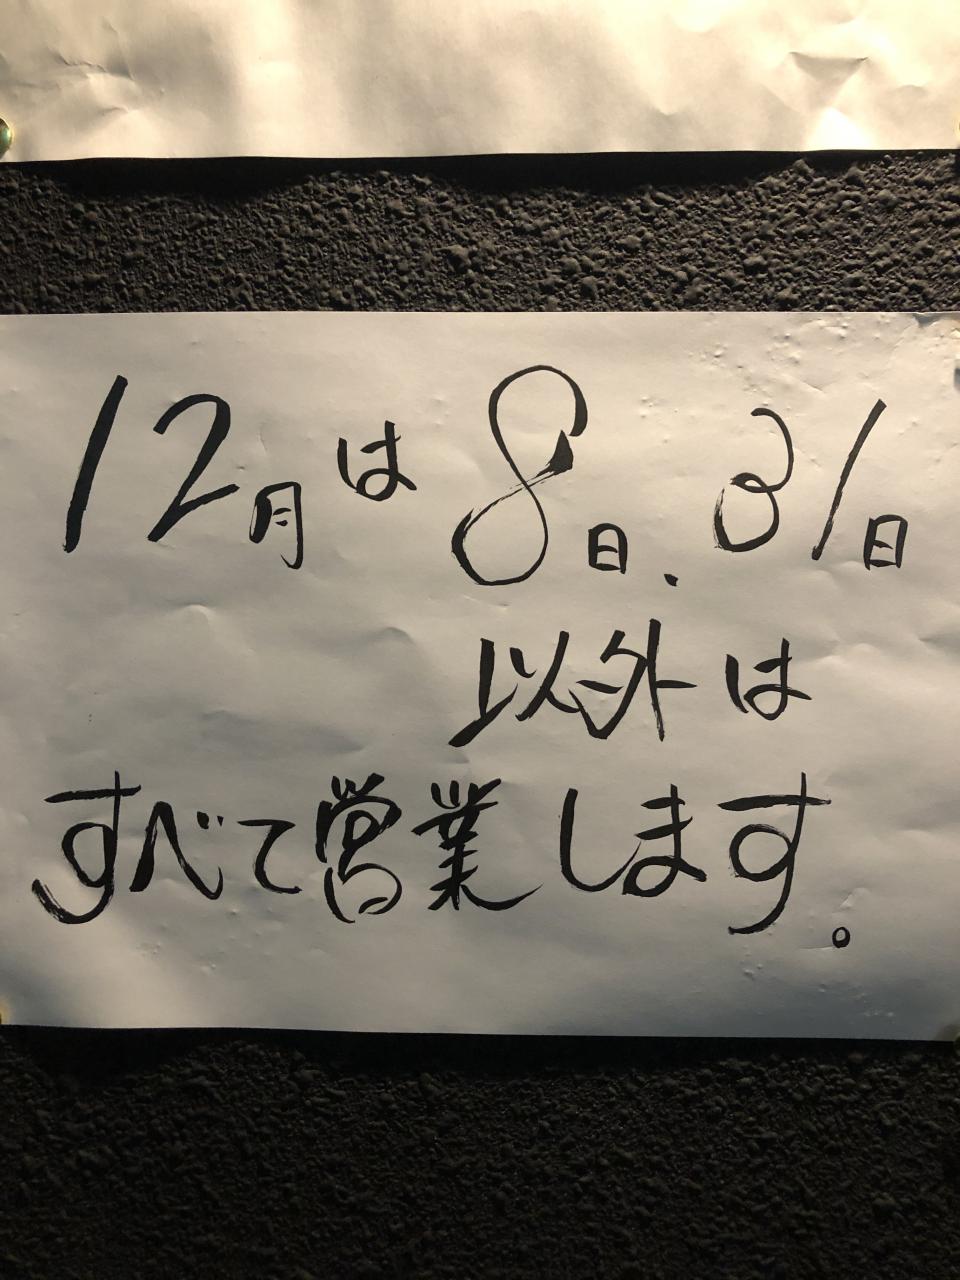 12月は8日、31日
以外は
すべて営業します。